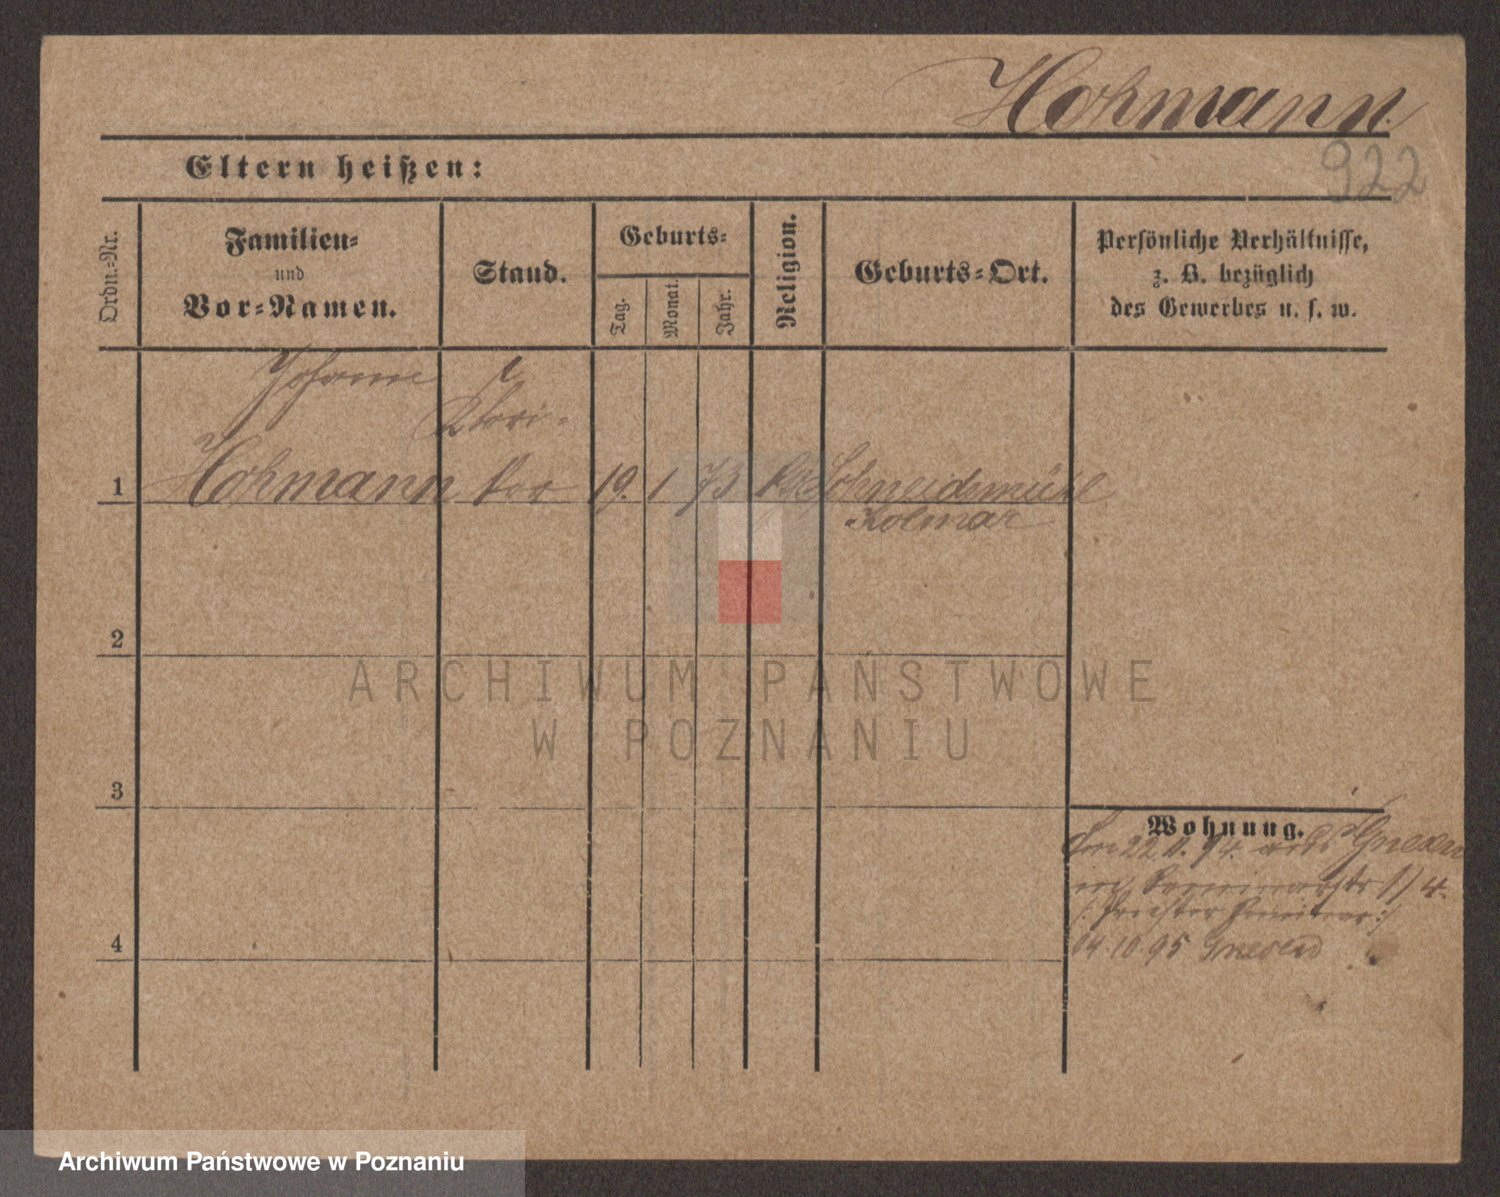 Hohmann.
922
Eltern heißen:
Ordn.-Nr.
Familien-
und
Vor-Namen.
Stand.
Geburts-
Tag.
Monat.
Jahr.
Religion.
Geburts-Ort.
Persönliche Verhältnisse,
z. B. bezüglich
des Gewerbes u. s. w.
Johann
Kleri-
1 Hohmann ker 19. 1 73 Schneidemühl
Kolmar
2
3
4
Wohnung.
22 11. 94. Gnesen
Seminarstr
Priester Seminar
14.10.95 Gnesen
ARCHIWUM PAŃSTWOWE
W POZNANIU
Archiwum Państwowe w Poznaniu